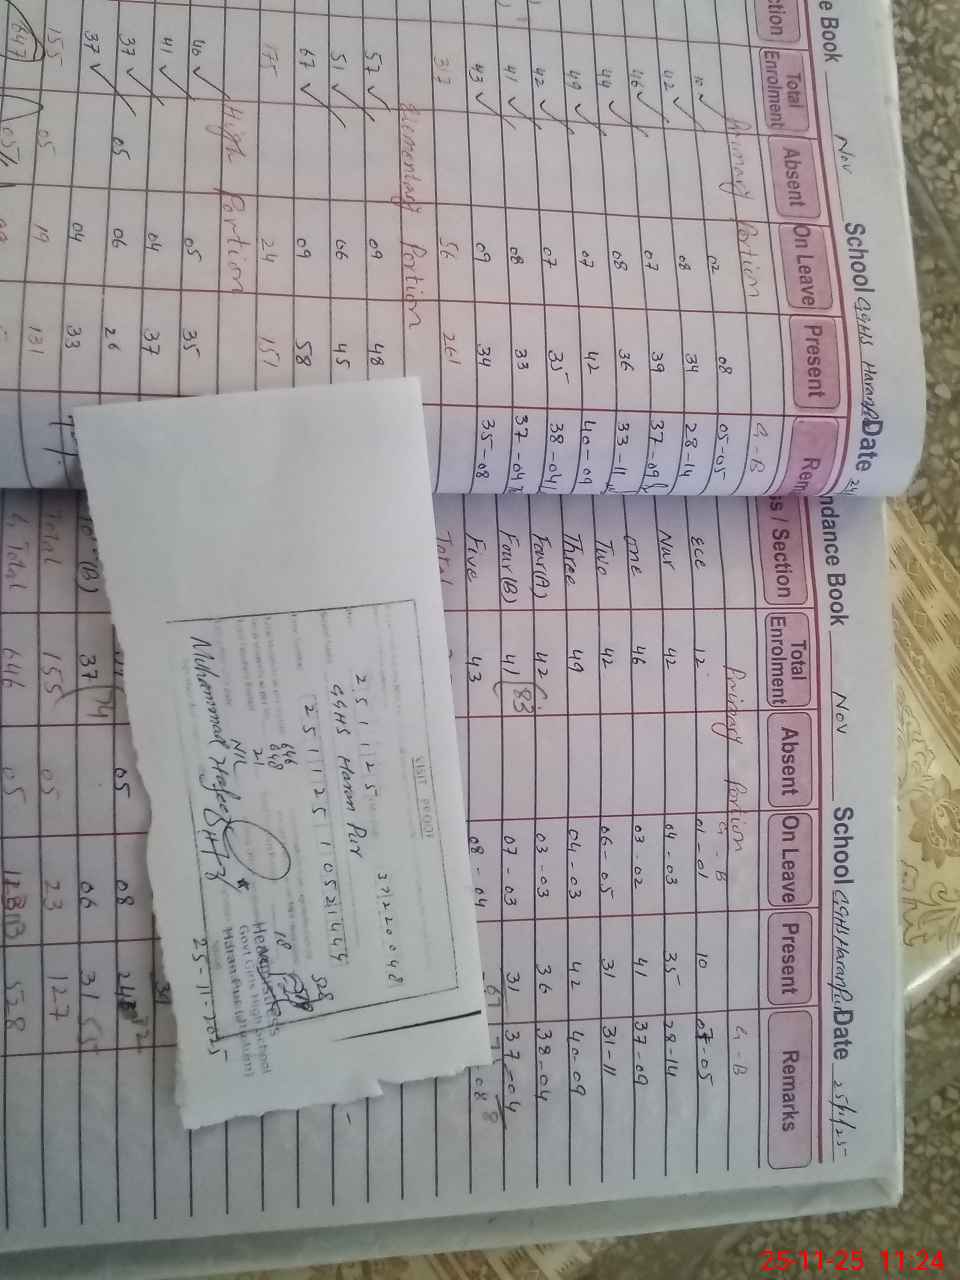 e Book Nov School GGHS Haranpur Date 24
ction Total Enrolment Absent On Leave Present Rem
Primary Portion G-B
10 ✓ 02 08 05-05
42 ✓ 08 34 28-14
46 ✓ 07 39 37-09
44 ✓ 08 36 33-11
49 ✓ 07 42 40-09
42 ✓ 07 35 38-04
41 ✓ 08 33 37-04
43 ✓ 09 34 35-08
317 56 261
Elementary Portion
57 ✓ 09 48
51 ✓ 06 45
67 ✓ 09 58
175 24 151
High Portion
40 ✓ 05 35
41 ✓ 04 37
37 ✓ 05 06 26
37 ✓ 04 33
155 05 19 131
647 05
ndance Book Nov School GGHS Haranpur Date 25/11/25
ss / Section Total Enrolment Absent On Leave Present Remarks
Primary Portion G-B G-B
ECE 12 01-01 10 07-05
Nur 42 04-03 35 28-14
One 46 03-02 41 37-09
Two 42 06-05 31 31-11
Three 49 04-03 42 40-09
Four(A) 42 03-03 36 38-04
Four(B) 41 83 07-03 31 37-04
Five 43 08-04 08
Total
05 08
(B) 37 74 06 31
Total 155 05 23 127
G. Total 646 05 528
VISIT PROOF
25 11 25 37220048
GGHS Haran Pur
25 11 25 1052 1444
646
648 528
21 18
NIL
Muhammad Hafeez
Headmistress
Govt Girls High School
Haranpur
25-11-2025
25-11-25 11:24